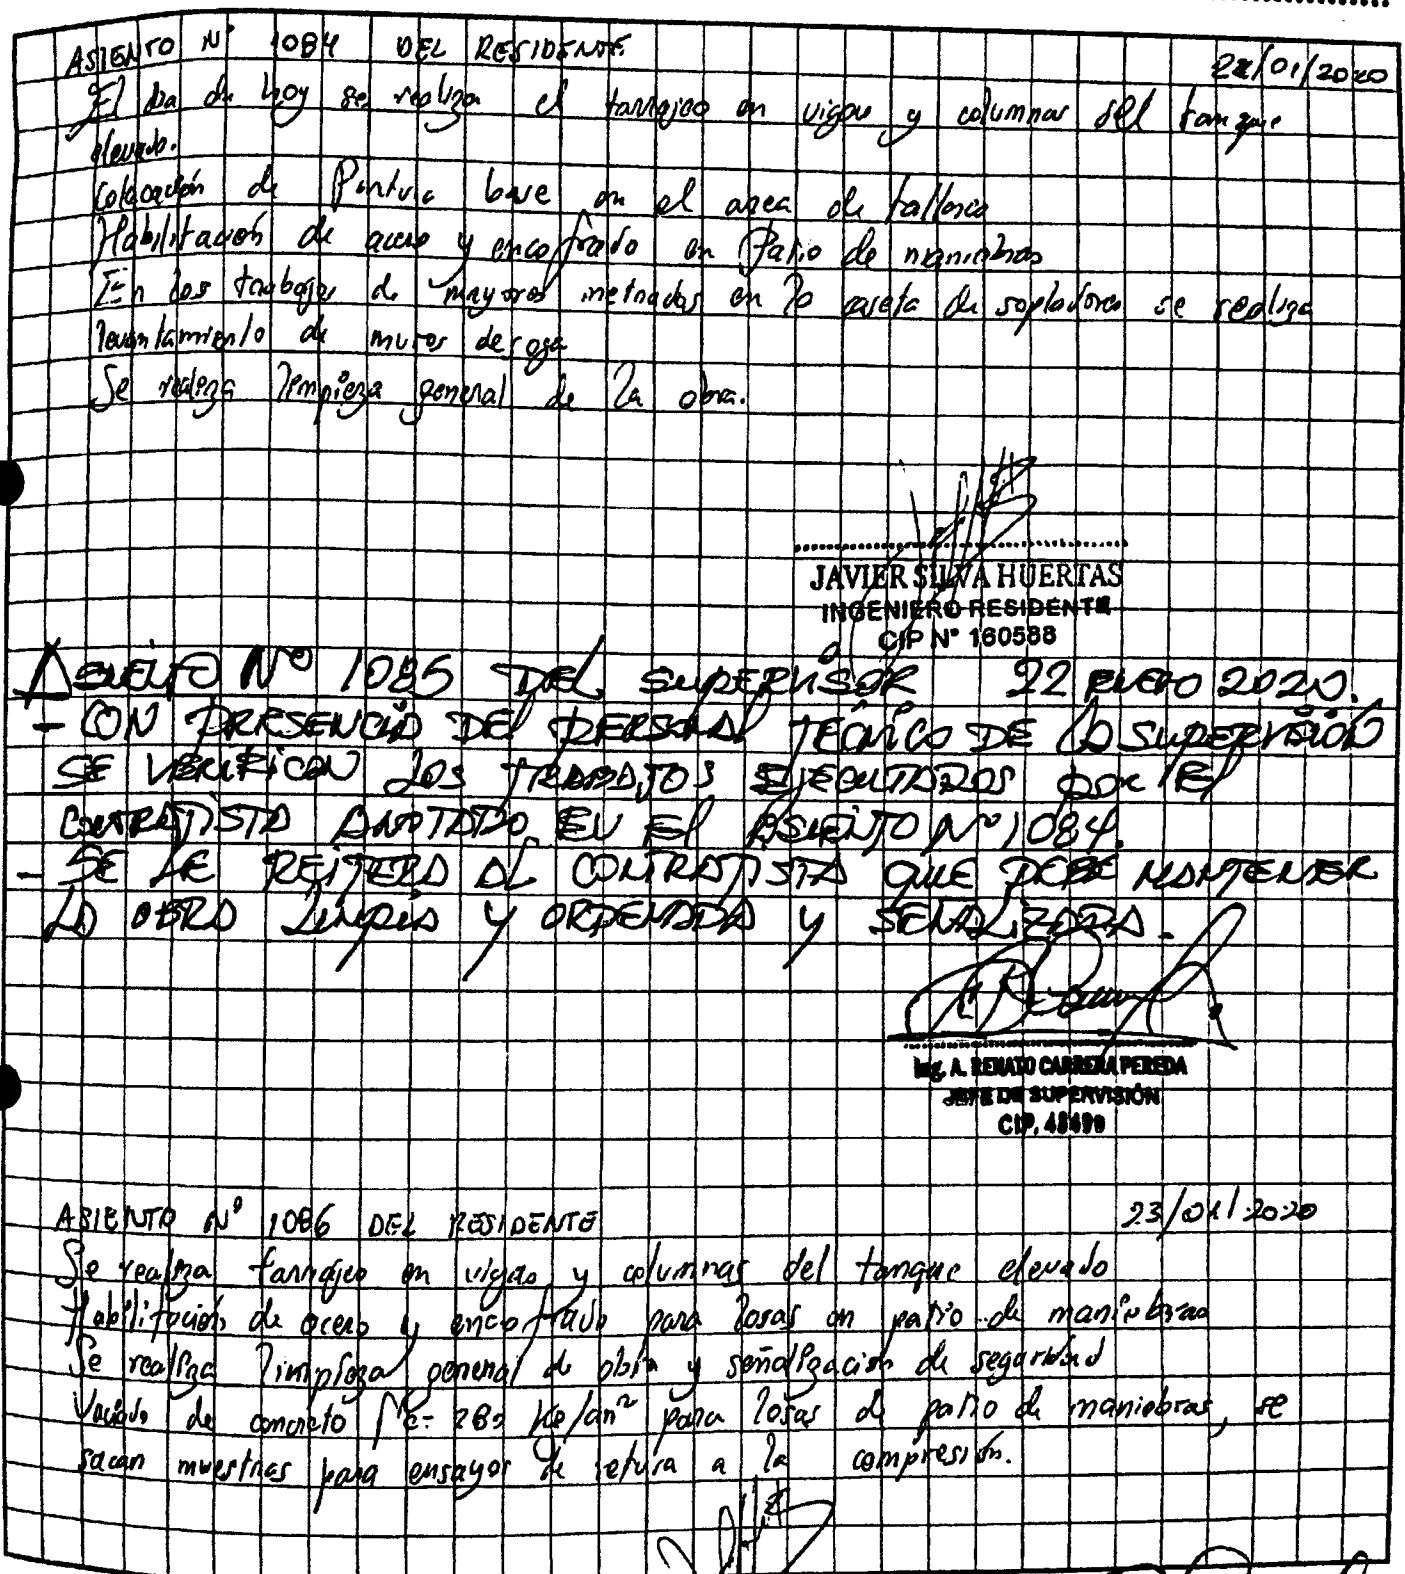 ASIENTO N° 1084 DEL RESIDENTE 22/01/2020
El dia de hoy se realiza el tarrajeo en vigas y columnas del tanque
elevado.
Colocación de Pintura base en el area de talleres
Habilitación de acero y encofrado en Patio de maniobras
En los trabajos de mayores metrados en la caseta de sopladores se realiza
levantamiento de muros de soga
Se realiza limpieza general de la obra.
JAVIER SILVA HUERTAS
INGENIERO RESIDENTE
CIP N° 160588
ASIENTO N° 1085 DEL SUPERVISOR 22 ENERO 2020.
- CON PRESENCIA DEL PERSONAL TECNICO DE LA SUPERVISIÓN
SE VERIFICAN LOS TRABAJOS EJECUTADOS POR EL
CONTRATISTA ANOTADO EN EL ASIENTO N° 1084.
- SE LE REITERA AL CONTRATISTA QUE DEBE MANTENER
LA OBRA LIMPIA Y ORDENADA Y SEÑALIZADA.
Ing. A. RENATO CARRERA PEREDA
JEFE DE SUPERVISIÓN
CIP.
ASIENTO N° 1086 DEL RESIDENTE 23/01/2020
Se realiza tarrajeo en vigas y columnas del tanque elevado
Habilitación de acero y encofrado para losas en patio de maniobras
Se realiza limpieza general de obra y señalización de seguridad
Vaciado de concreto f'c= 280 Kg/cm² para losas de patio de maniobras, se
sacan muestras para ensayos de rotura a la compresión.